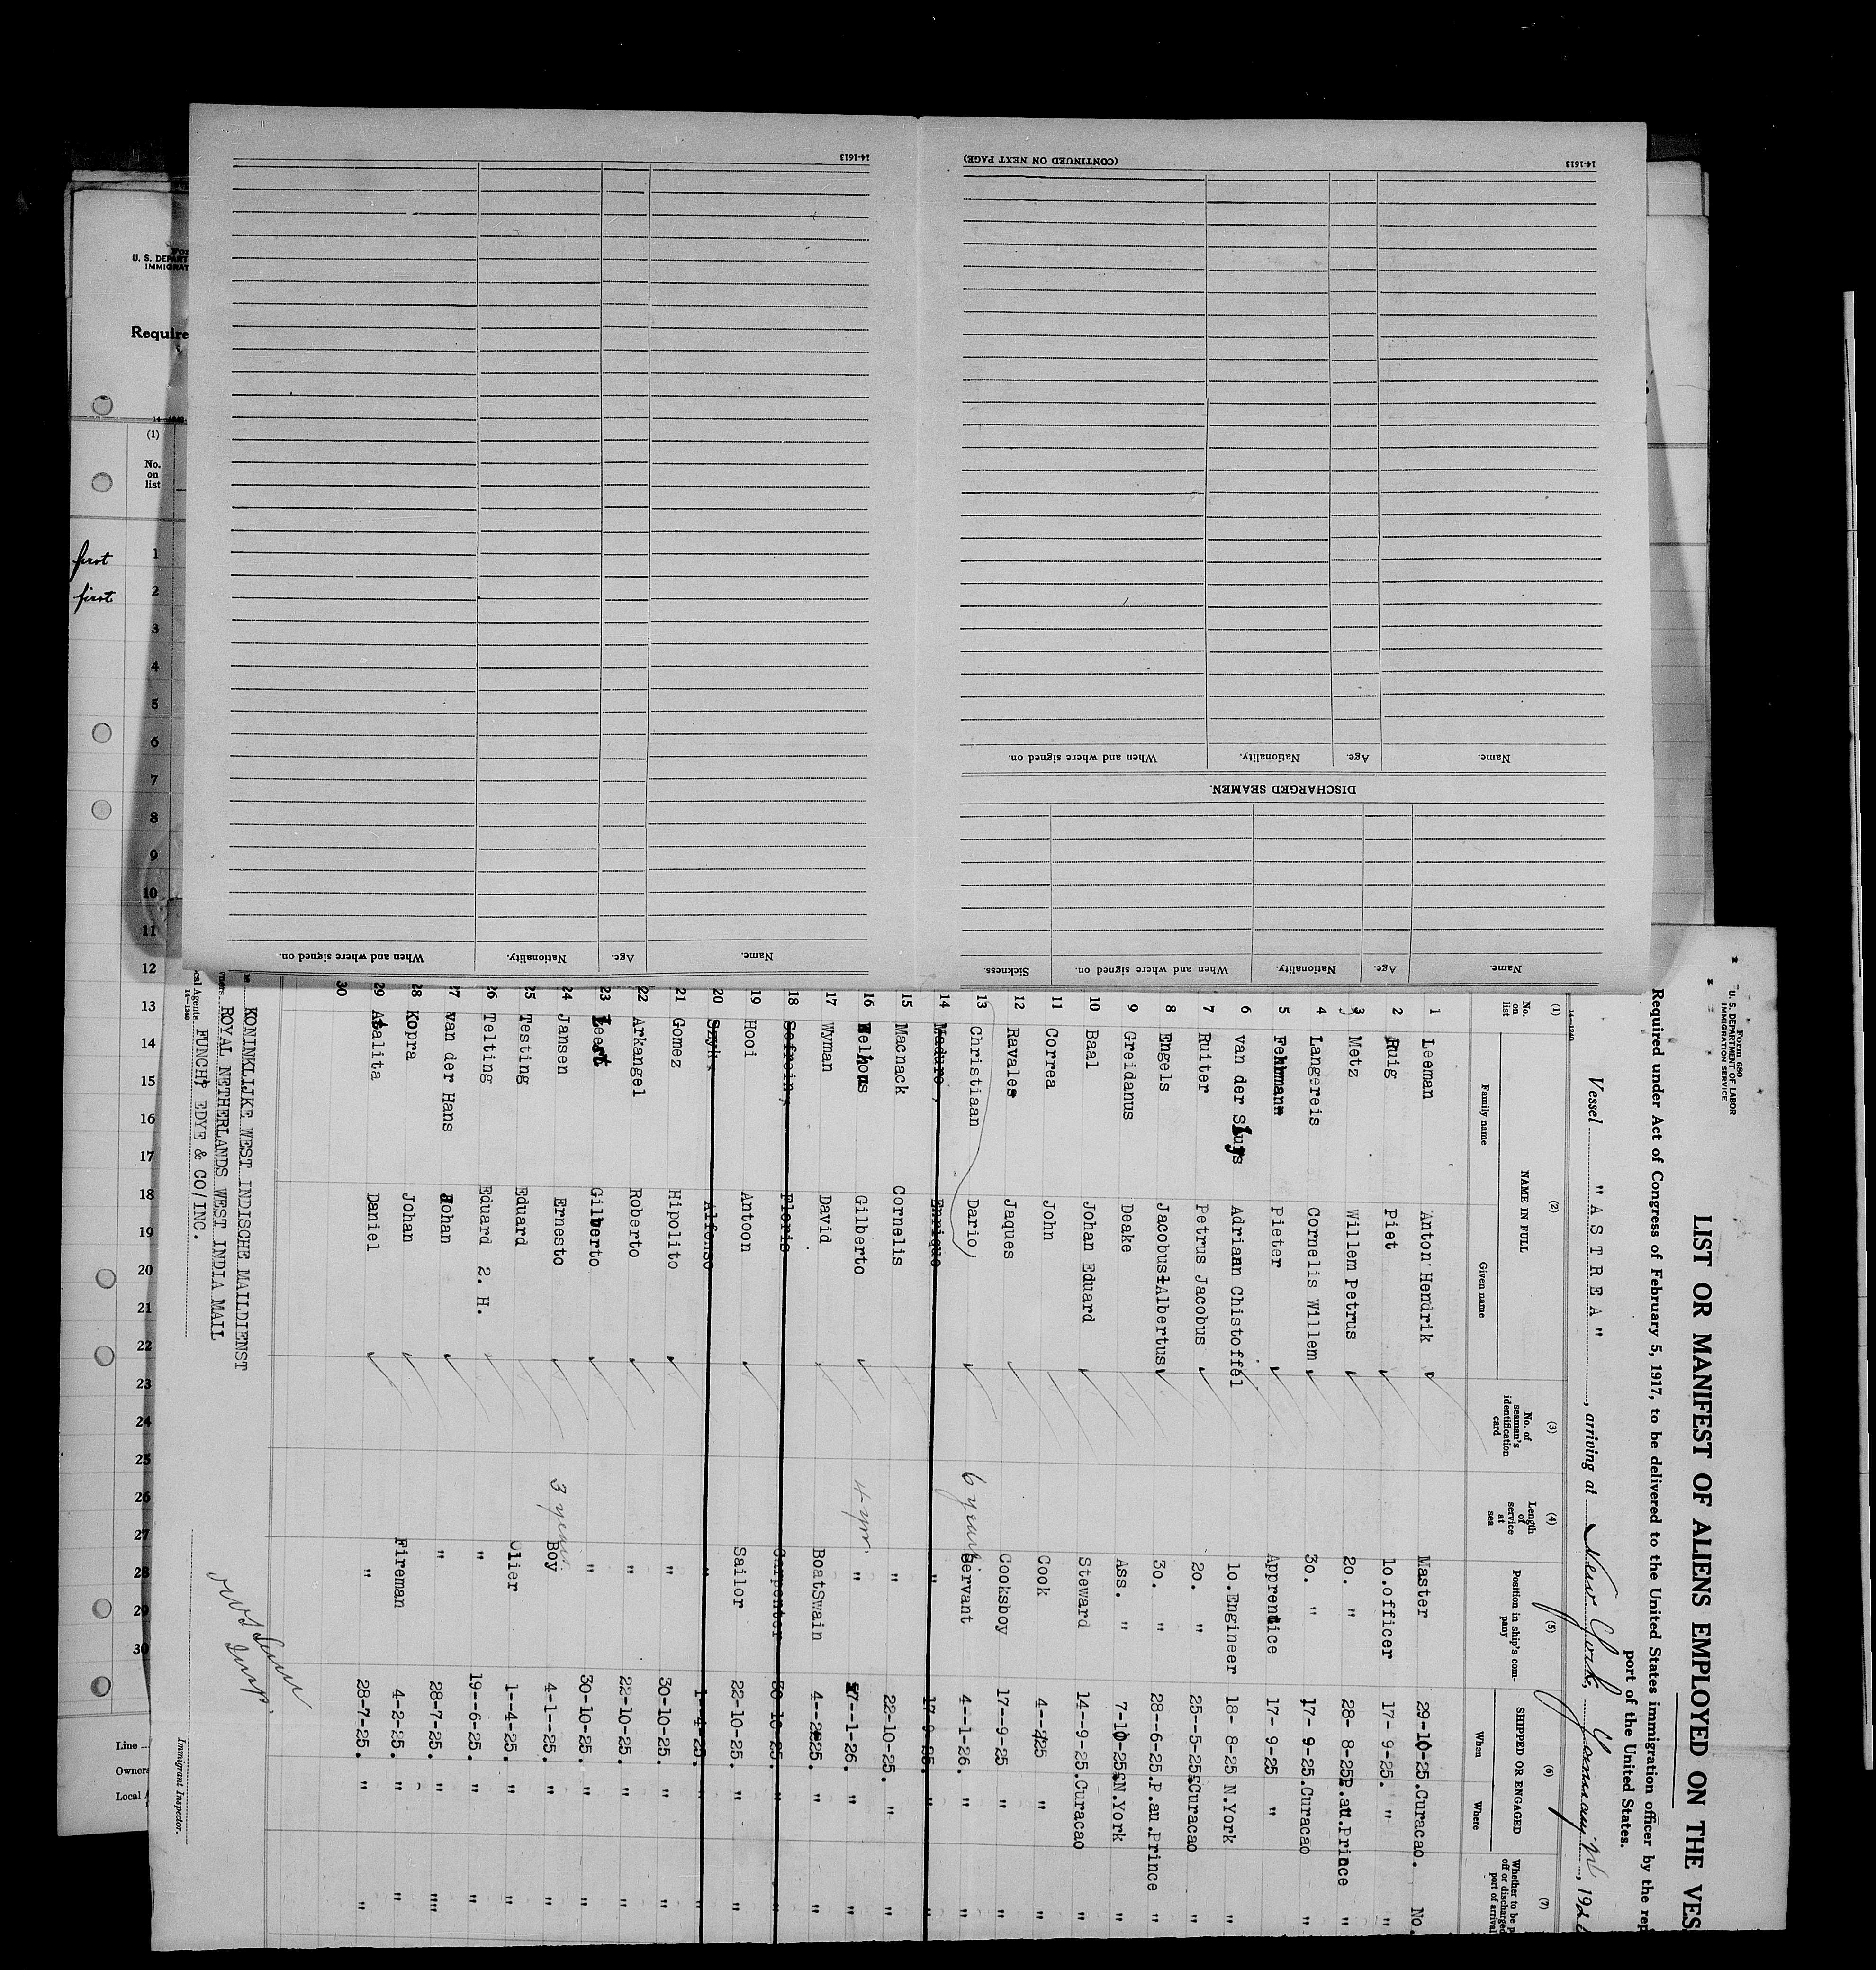 Form 680
U. S. DEPARTMENT OF LABOR
IMMIGRATION SERVICE
LIST OR MANIFEST OF ALIENS EMPLOYED ON THE VES
Required under Act of Congress of February 5, 1917, to be delivered to the United States immigration officer by the rep
port of the United States.
Vessel "ASTREA", arriving at New York, January, 192
14-1240
(1) (2) (3) (4) (5) (6) (7)
No. on list
NAME IN FULL
Family name Given name
No. of seaman's identification card
Length of service at sea
Position in ship's company
SHIPPED OR ENGAGED
When Where
Whether to be
off or discharged
port of arrival
1 Leeman Anton Hendrik Master 29-10-25. Curacao. No.
2 Ruig Piet 1o.officer 17- 9-25. " "
3 Metz Willem Petrus 2o. " 28- 8-25 P.au.Prince "
4 Langereis Cornelis Willem 3o. " 17- 9-25. Curacao "
5 Fehhmann Pieter Apprentice 17- 9-25 "
6 van der Sluys Adriaan Chistoffel 1o.Engineer 18- 8-25 N.York "
7 Ruiter Petrus Jacobus 2o. " 25--5-25 Curacao "
8 Engels Jacobus Albertus 3o. " 28--6-25. P.au.Prince "
9 Greidanus Deake Ass. " 7-10-25 N.York "
10 Baal Johan Eduard Steward 14--9-25. Curacao "
11 Correa John Cook 4-- 25 " "
12 Ravales Jaques Cooksboy 17--9-25 " "
13 Christiaan Dario 6 years Servant 4--1-26. " "
14 Maduro, Enrique " 17-9-25. " "
15 Macnack Cornelis " 22-10-25. " "
16 Welhous Gilberto 4 yr. " 7--1-26. " "
17 Wyman David BoatSwain 4-- 25. " "
18 Sofrein, Floris Carpenter 30-10-25. " "
19 Hooi Antoon Sailor 22-10-25. " "
20 Alfonso " 1--4-25. " "
21 Gomez Hipolito " 30-10-25. " "
22 Arkangel Roberto " 22-10-25. " "
23 Leest Gilberto " 30-10-25. " "
24 Jansen Ernesto 3 years Boy 4-1--25. " "
25 Testing Eduard Olier 1--4-25. " "
26 Telting Eduard 2. H. " 19--6-25. " "
27 van der Hans Johan " 28-7-25. " "
28 Kopra Johan Fireman 4-2-25. " "
29 Asalita Daniel " 28-7-25. " "
30
KONINKLIJKE WEST INDISCHE MAILDIENST
ROYAL NETHERLANDS WEST INDIA MAIL
FUNCH, EDYE & CO/INC.
cal Agents
14-1240
Insp.
Immigrant Inspector.
Name. Age. Nationality. When and where signed on. Sickness.
DISCHARGED SEAMEN.
Name. Age. Nationality. When and where signed on.
(CONTINUED ON NEXT PAGE)
14-1613
Name. Age. Nationality. When and where signed on.
14-1613
For
U. S. DEPART
IMMIGRAT
Require
14
(1)
No. on list
first 1
first 2
3
4
5
6
7
8
9
10
11
12
13
14
15
16
17
18
19
20
21
22
23
24
25
26
27
28
29
30
Line
Owners
Local A